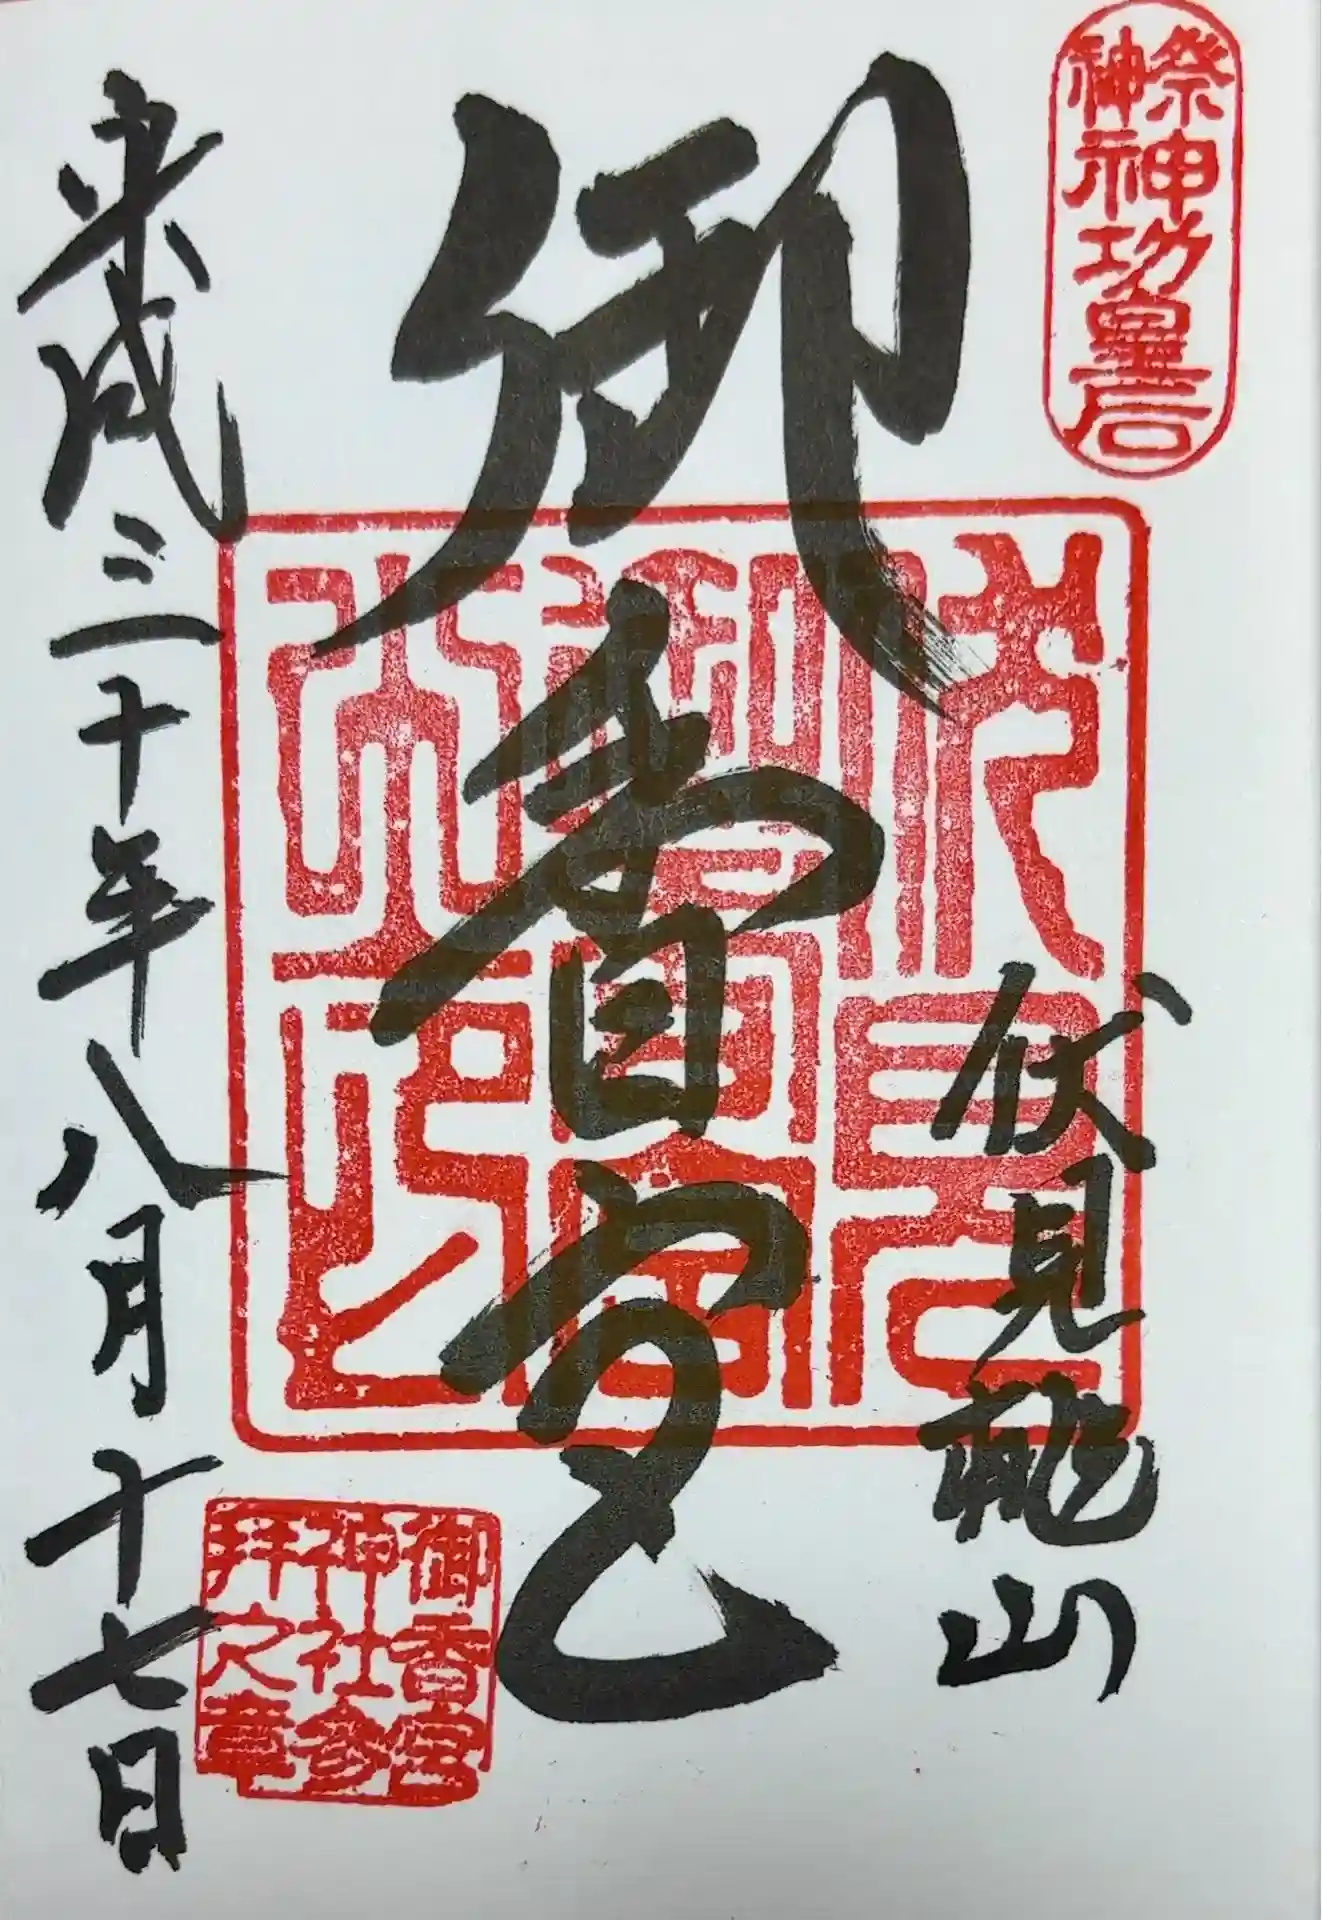 祭神
神功皇后
伏見桃山
御香宮
伏見
御香宮
之印
御香宮
神社参
拝之章
平成三十年八月十七日